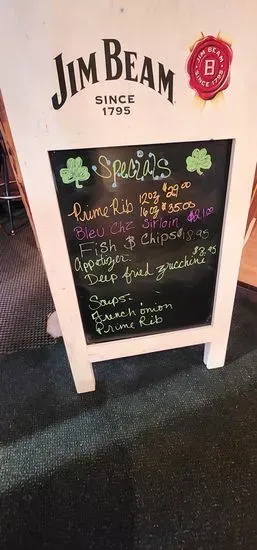 JIM BEAM
SINCE
1795
JIM BEAM
B
SINCE 1795
Specials
Prime Rib 12oz $29.00
16oz $35.00
Bleu Chz Sirloin $21.00
Fish & Chips $18.95
Appetizer:
Deep fried zucchini
Soups:
French onion
Prime Rib